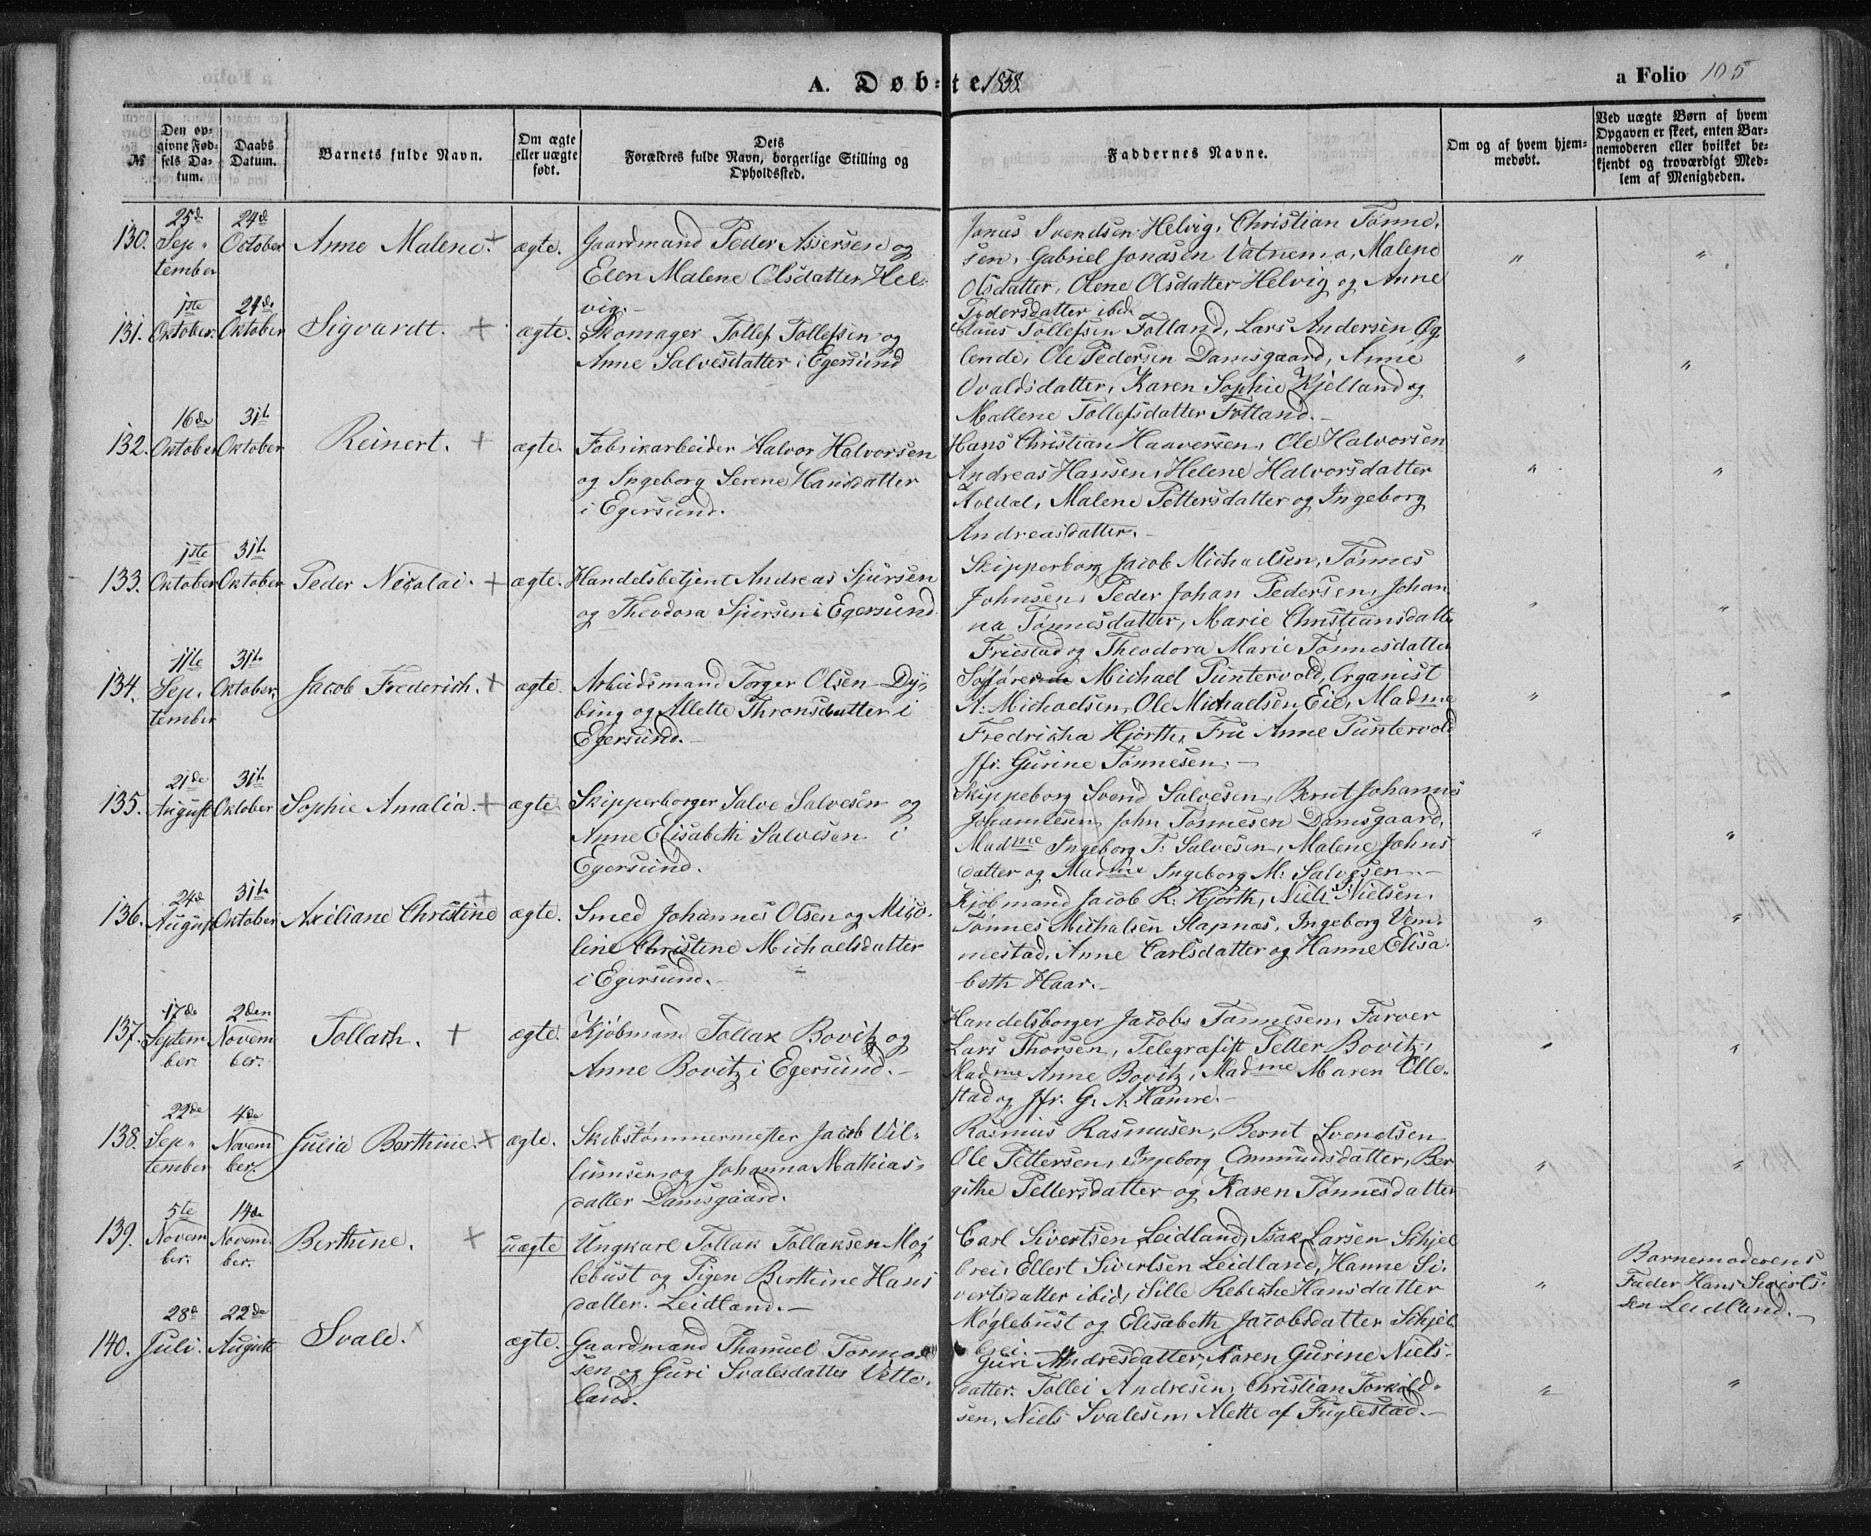 A. Døbte 1858. a Folio 105
№
Den op-
givne Fød-
sels Da-
tum.
Daabs
Datum.
Barnets fulde Navn.
Om ægte
eller uægte
født.
Dets
Forældres fulde Navn, borgerlige Stilling og
Opholdssted.
Faddernes Navne.
Om og af hvem hjem-
medøbt.
Ved uægte Børn af hvem
Opgaven er skeet, enten Bar-
nemoderen eller hvilket be-
kjendt og troværdigt Med-
lem af Menigheden.
130.
25de
Sep-
tember
24de
October
Anne Malene. +
ægte.
Gaardmand Peder Assersen og
Elen Malene Olsdatter Hel-
vig.-
Jonas Svendsen Helvig, Christian Tønne-
sen, Gabriel Jonasen Vatnemo, Malene
Olsdatter, Olene Olsdatter Helvig og Anne
Pedersdatter ibd.
" "
131.
1ste
Oktober.
24de
Oktober
Sigvardt. +
ægte.
Skomager Tollef Tollefsen og
Anne Salvesdatter i Egersund
Claus Tollefsen Fotland, Lars Andersen Øg-
lende, Ole Pedersen Damsgaard, Anne
Ovaldsdatter, Karen Sophie Kjelland og
Mallene Tollefsdatter Fotland.-
" "
132.
16de
Oktober
31te
Oktober
Reinert. +
ægte.
Fabrikarbeider Halvor Halvorsen
og Ingeborg Serene Hansdatter
i Egersund.
Hans Christian Haaversen, Ole Halvorsen
Andreas Hansen, Helene Halvorsdatter
Avldal, Malene Pettersdatter og Ingeborg
Andreasdatter.-
" "
133.
1ste
Oktober
31te
Oktober
Peder Nicolai. +
ægte.
Handelsbetjent Andreas Sjursen
og Theodora Sjursen i Egersund
Skipperborg Jacob Michaelsen, Tønnes
Johnsen, Peder Johan Pedersen, Johan-
na Tønnesdatter, Marie Christiansdatte
Friestad og Theodora Marie Tønnesdatter
" "
134.
11te
Sep-
tember
31te
Oktober.
Jacob Frederich. +
ægte.
Arbeidsmand Torger Olsen Dy-
bing og Allette Thronsdatter i
Egersund.-
Søfører Michael Puntervold, Organist
A. Michaelsen, Ole Michaelsen Eie, Madme
Fredrikha Hjorth, Fru Anne Puntervold
Jfr. Gurine Tønnesen.-
" "
135.
21de
August
31te
Oktober
Sophie Amalia. +
ægte.
Skipperborger Salve Salvesen og
Anne Elisabeth Salvesen i
Egersund.
Skippeborg Svend Salvesen, Bernt Johannes
Johannesen, John Tønnesen Damsgaard,
Madme Ingeborg T. Salvesen, Malene Johns-
datter og Madme Ingeborg M. Salvesen.-
" "
136.
24de
August
31te
Oktober
Axeliane Christine +
ægte.
Smed Johannes Olsen og
line Christine Michaelsdatter
i Egersund.-
Kjøbmand Jacob R. Hjorth, Niels Nielsen,
Tønnes Michalsen Slapnæs, Ingeborg Vem-
mestad, Anne Carlsdatter og Hanne Elisa-
beth Haar.-
" "
137.
17de
Septem-
ber.
2den
Novem-
ber.
Tollach. +
ægte.
Kjøbmand Tollak Bovitz og
Anne Bovitz i Egersund.-
Handelsborger Jacobs Tønnesen, Farver
Lars Thorsen, Telegrafist Petter Bovitz,
Madme Anne Bovitz, Madme Maren Elle-
stad og Jfr. G. A. Hamre.-
" "
138.
22de
Sep-
tember
4de
Novem-
ber.
Julia Berthine. +
ægte.
Skibstømmermester Jacob Vil-
lumsen og Johanna Mathias-
datter Damsgaard.
Rasmus Rasmusen, Bernt Svendsen
Ole Pettersen, Ingeborg Ommundsdatter, Ber-
githe Pettersdatter og Karen Tønnesdatter
" "
139.
5te
Novem-
ber.
14de
Novem-
ber.
Berthine. +
uægte
Ungkarl Tollak Tollaksen Møg-
lebust og Pigen Berthine Hans-
datter. Leidland.-
Carl Sivertsen Leidland, Isak Larsen Schjel-
brei, Ellert Sivertsen Leidland, Hanne Si-
vertsdatter ibid, Sille Rebekke Hansdatter
Møglebust og Elisabeth Jacobsdatter Schjel-
brei.-
"
Barnemoderens
Fader Hans Siverts-
sen Leidland.-
140.
28de
Juli.
22de
August
Svale. +
ægte.
Gaardmand Thamuel Tormod-
sen og Guri Svalesdatter Vette-
land.
Guri Andresdatter, Karen Gurine Niels-
datter. Tollei Andresen, Christian Torkild-
sen, Niels Svalesen, Mette af Fuglestad.-
" "